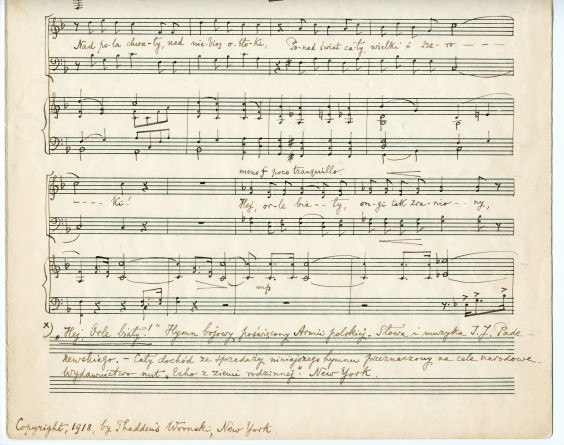 Nad po-la chwa-ły, nad nie-bios o-bło-ki, Po-nad świat ca-ły, wielki i sze-ro - - - -
meno f poco tranquillo.
- - - - ki! Hej, or-le bia- - ty, on-gi tak zra-nio - - ny,
mp
x) "Hej Orle biały!" Hymn bojowy, poświęcony Armii polskiej. Słowa i muzyka I. J. Pade-
rewskiego, – Cały dochód ze sprzedaży niniejszego hymnu przeznaczony na cele narodowe.
Wydawnictwo nut "Echo z ziemi rodzinnej". New York.
Copyright, 1918, by Thaddeus Wronski, New York.